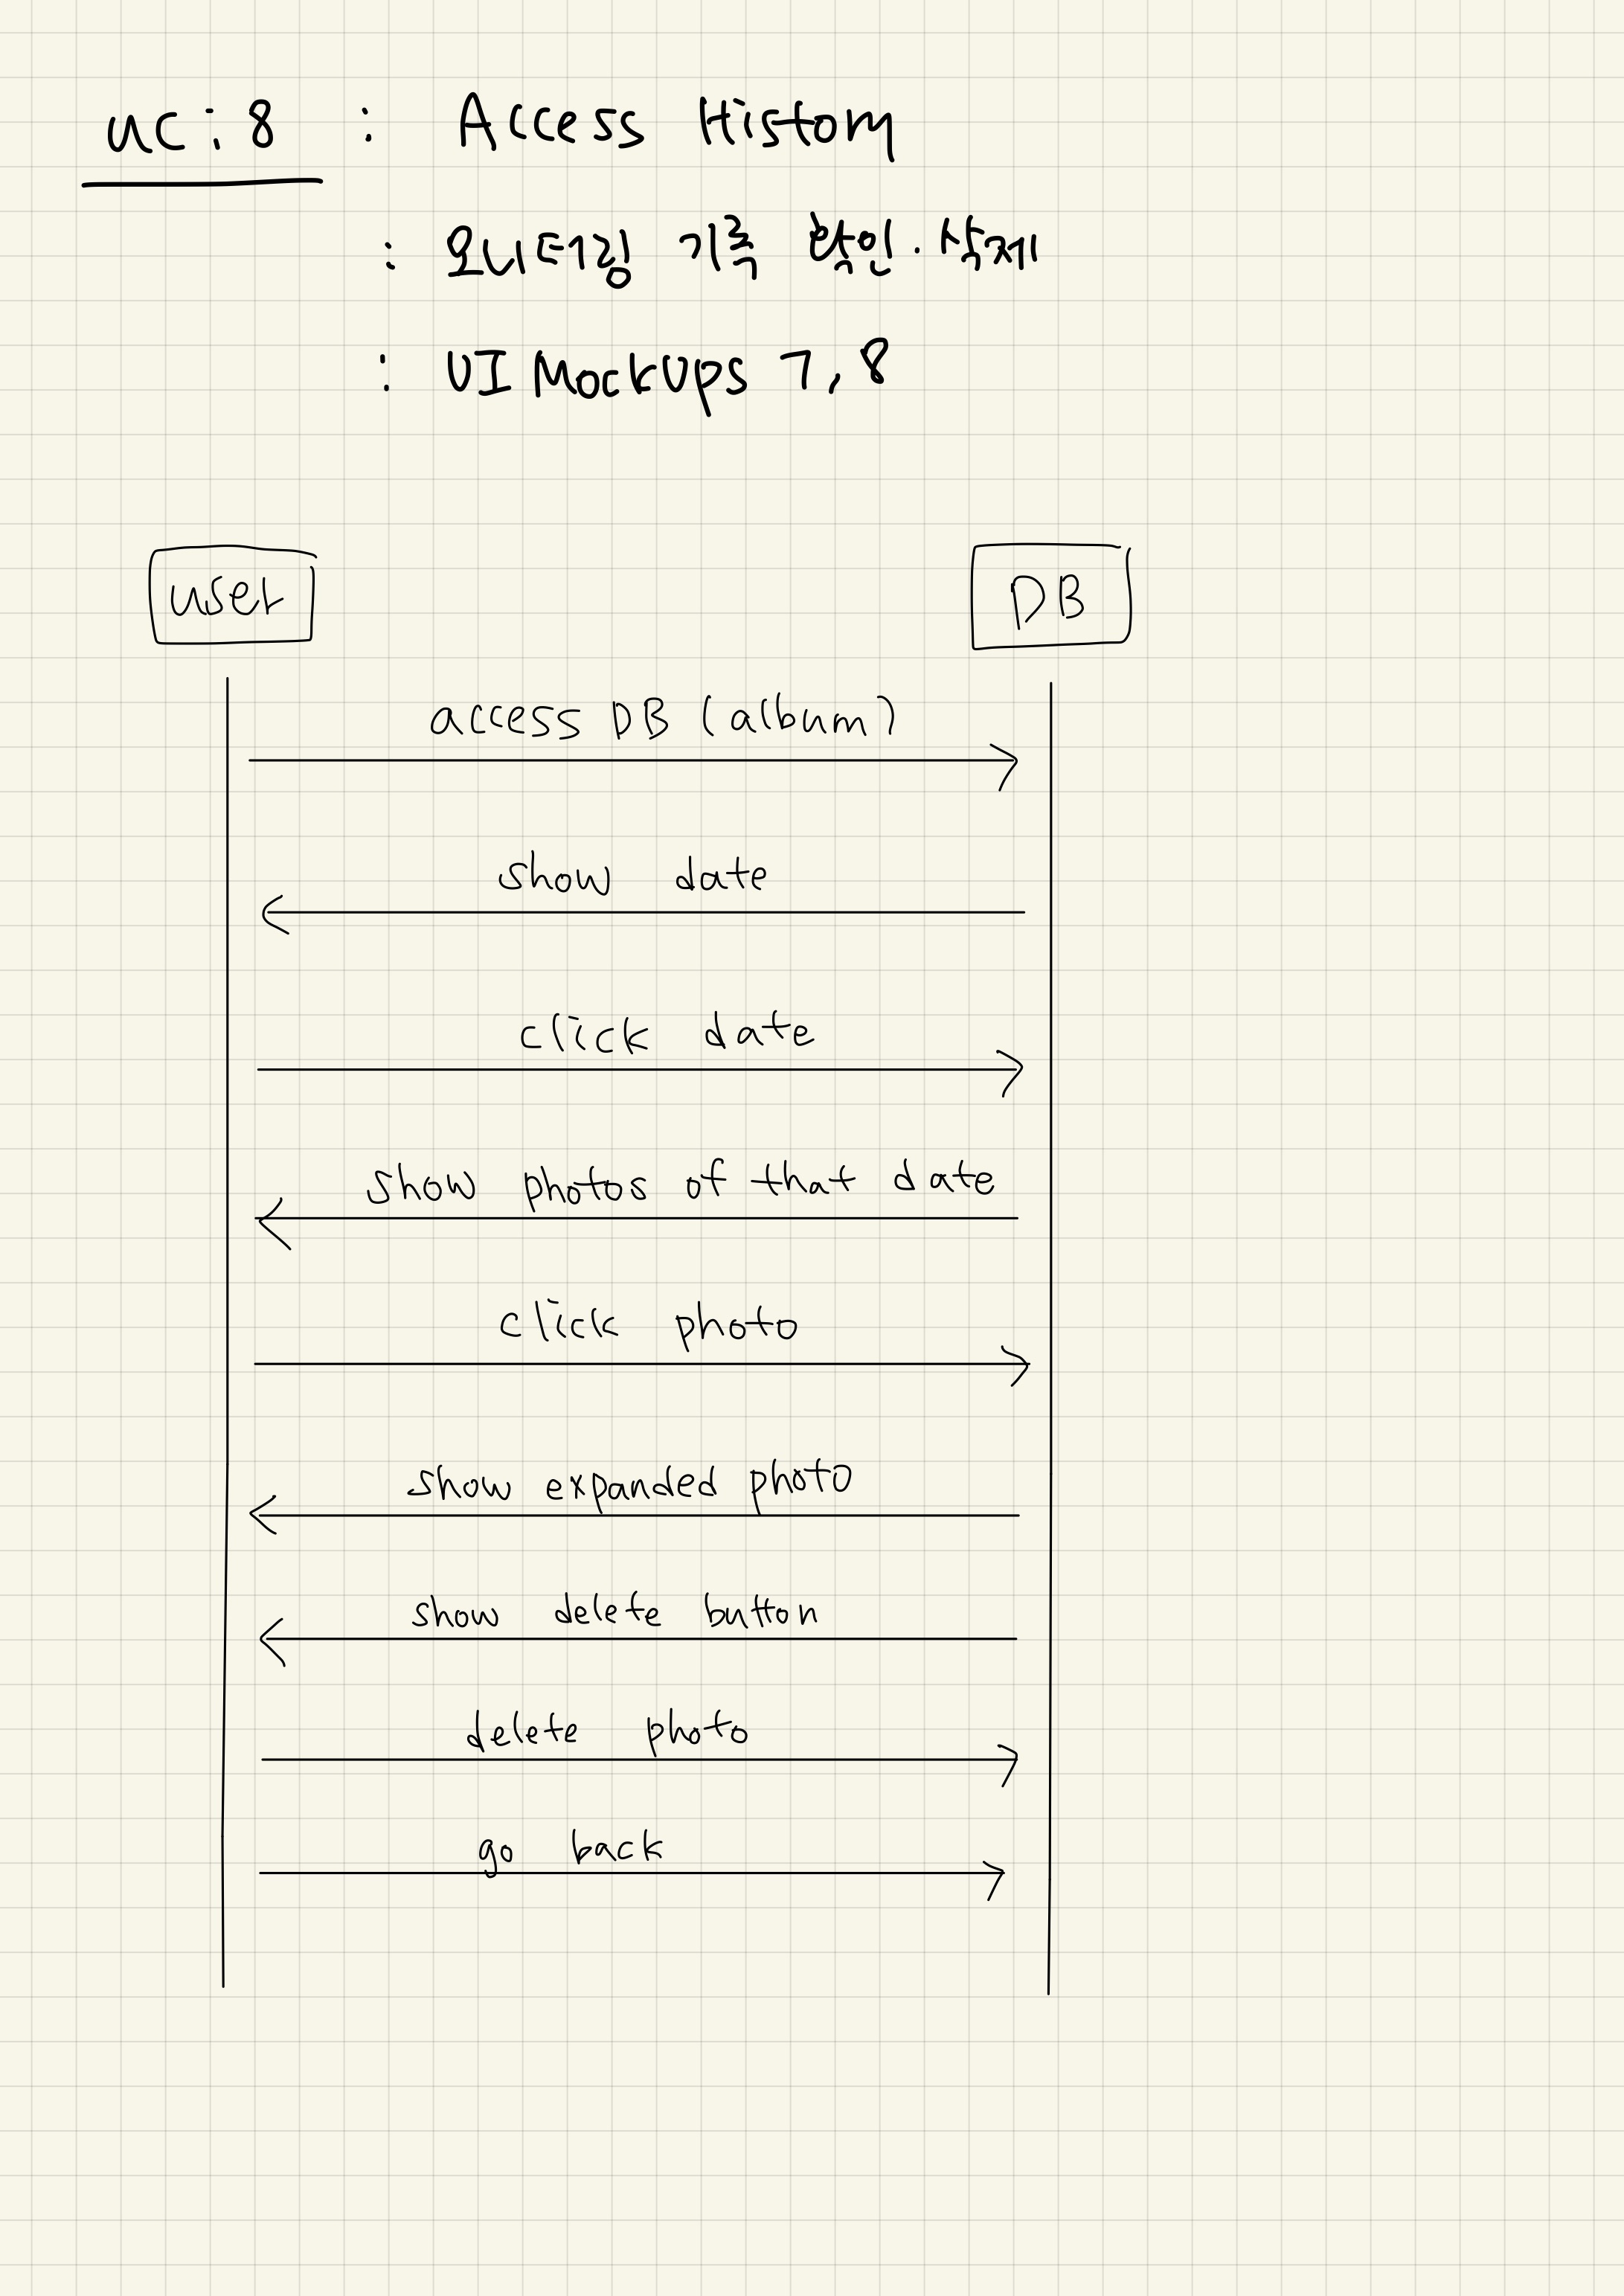 uc:8 : Access History
: 모니터링 기록 확인.삭제
: UI Mockups 7,8
user
DB
access DB (album)
show date
click date
show photos of that date
click photo
show expanded photo
show delete button
delete photo
go back